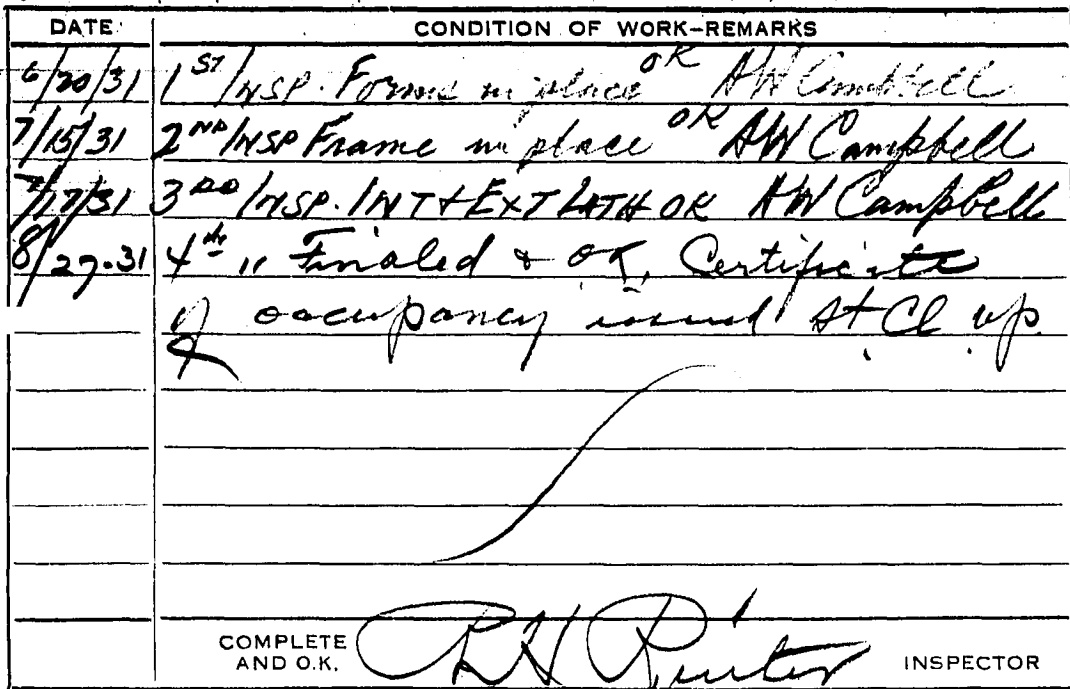 DATE CONDITION OF WORK-REMARKS
6/20/31 1ST INSP. Forms in place OK AW Campbell
7/15/31 2ND INSP Frame in place OK AW Campbell
7/17/31 3RD INSP. INT + EXT LATH OK AW Campbell
8/27-31 4th " Finaled & OK, Certificate
of occupancy issued St Cl up.
COMPLETE
AND O.K. RH INSPECTOR